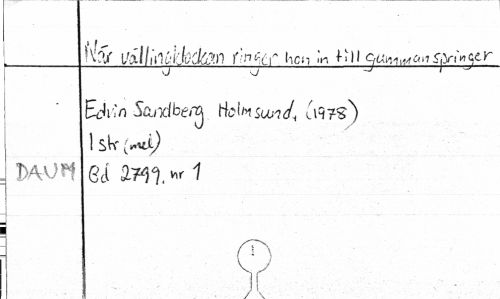 När vällingklockan ringer hon in till gumman springer
Edvin Sandberg Holmsund, (1978)
1 str (mel)
DAUM Bd 2799, nr 1
1